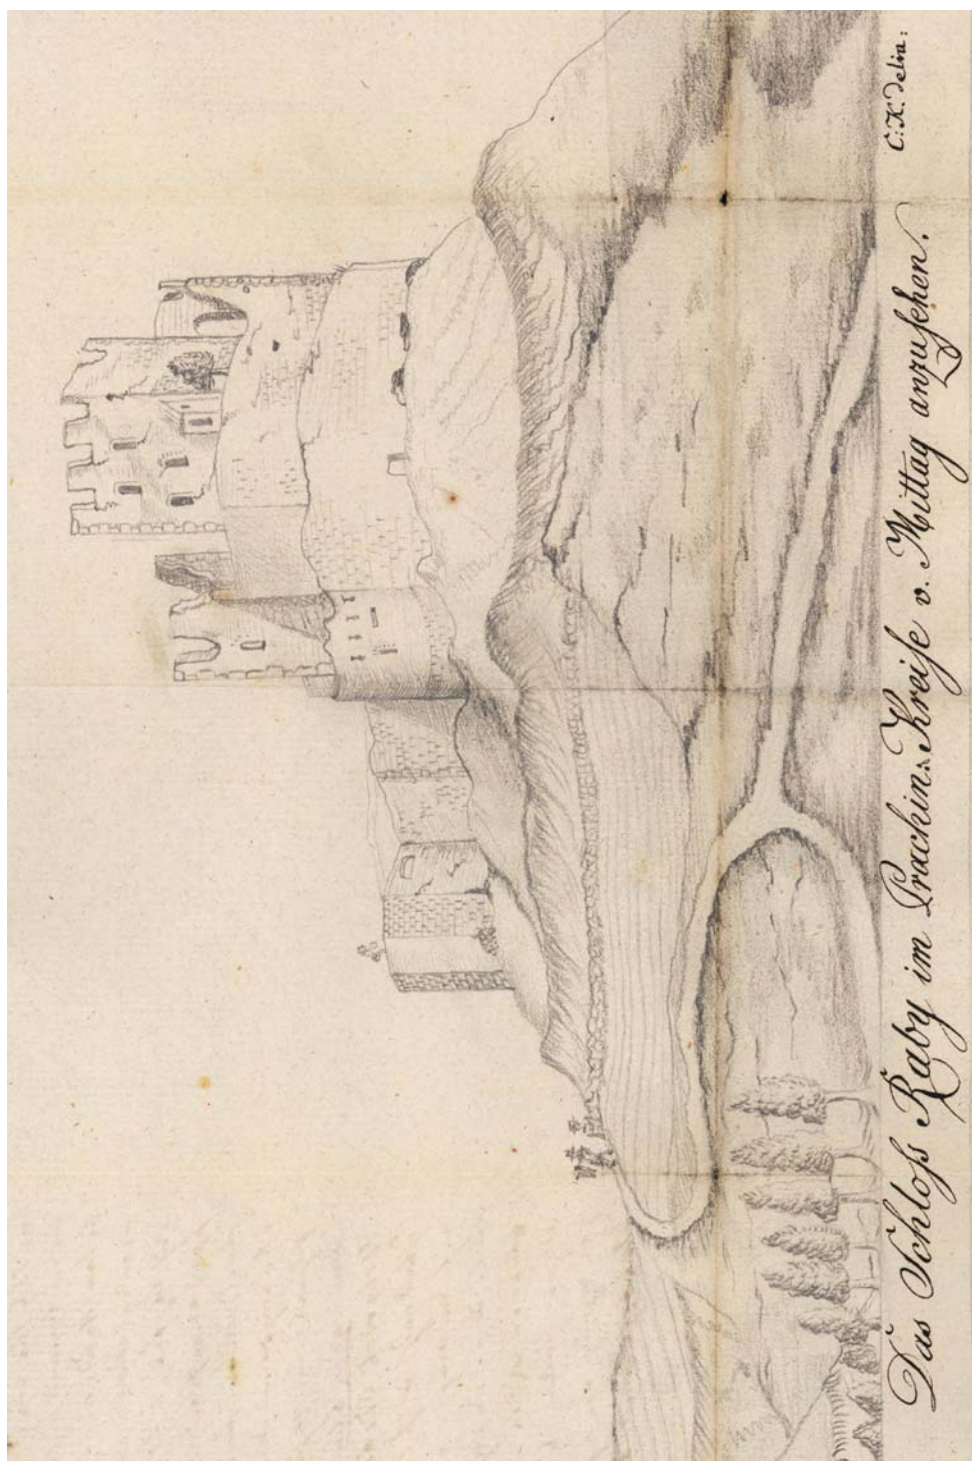 Das Schloß Raby im Prachin: Kreise v. Mittag anzusehen.
C: K: delin: